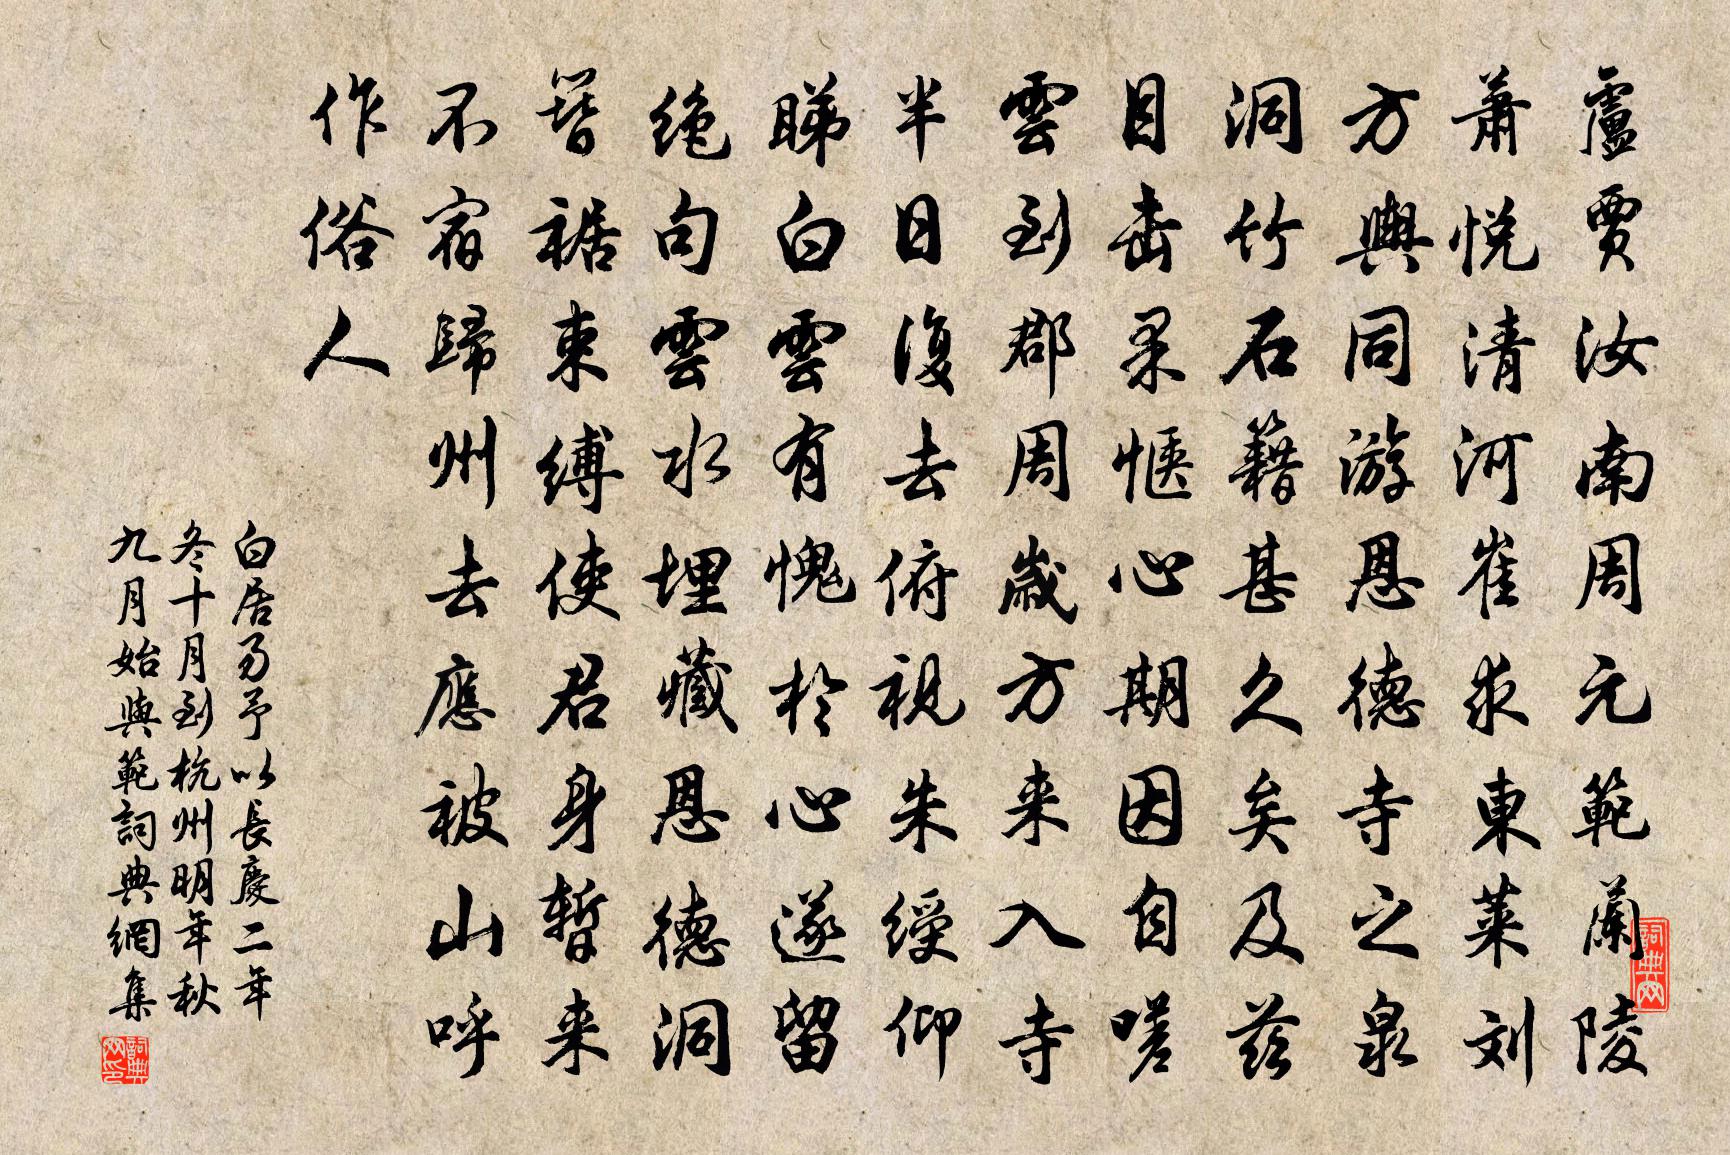 盧賈汝南周元範蘭陵
萧悦清河崔求東莱刘
方輿同游恩德寺之泉
洞竹石籍甚久矣及兹
目击果惬心期因自嗟
雲到郡周歲方来入寺
半日復去俯視朱绶仰
睇白雲有愧於心遂留
绝句雲水埋藏恩德洞
簪裾束缚使君身暂来
不宿歸州去應被山呼
作俗人
白居易予以長慶二年
冬十月到杭州明年秋
九月始與範詞典網集
詞典网
詞典网印